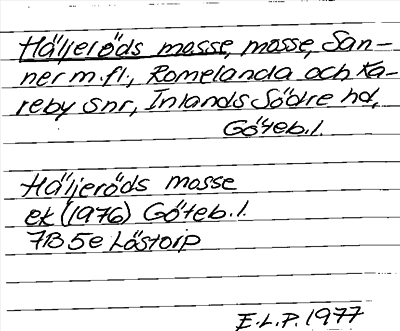 Häljeröds mosse, mosse, San-
ner m.fl., Romelanda och Ka-
reby snr, Inlands Södre hd,
Göteb.l.
Häljeröds mosse
ek (1976) Göteb.l.
7B 5e Löstorp
E.L.P. 1977